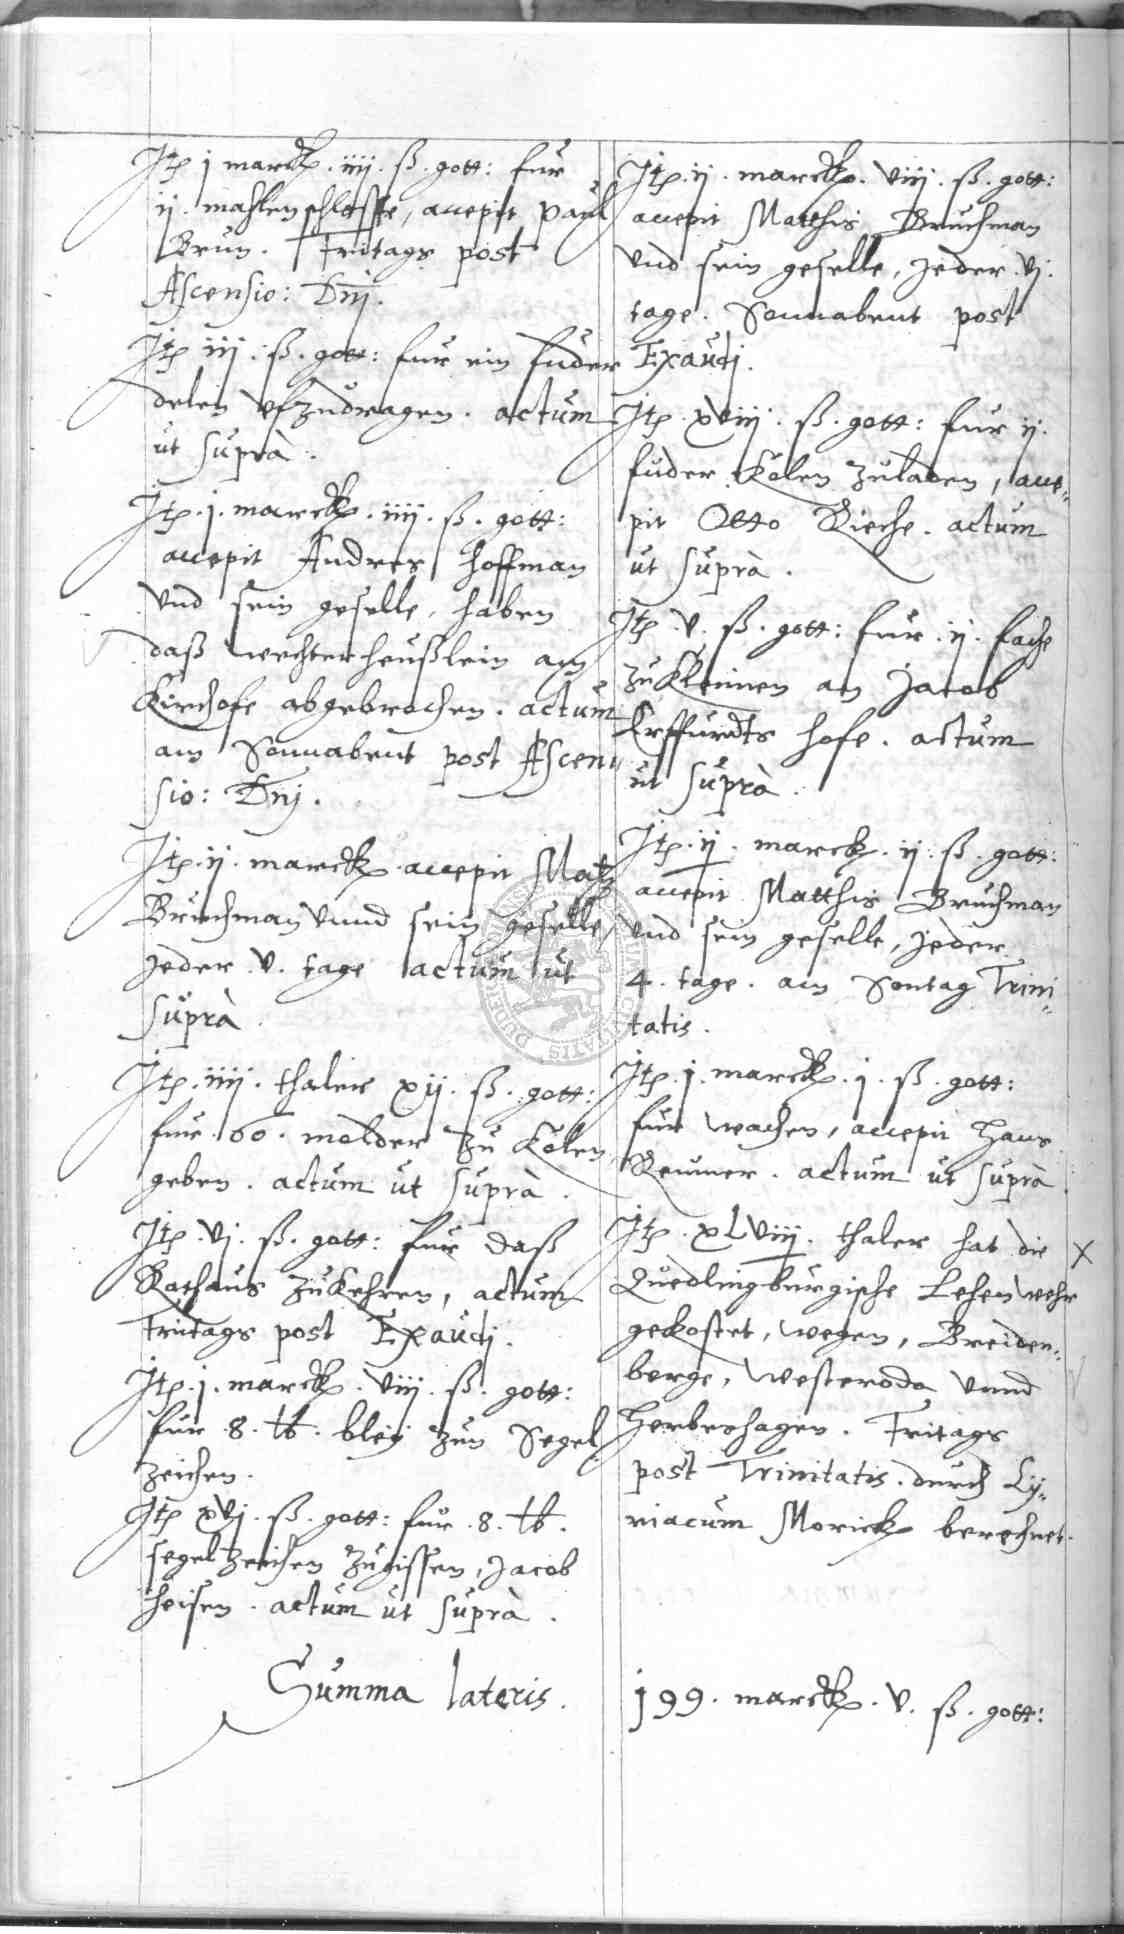 Itē j marck. iiij. ß. gott: fur
ij. mahlenschlosse, accepit Paul
Brun. Fritags post
Ascensio: Dnj.
Itē iij. ß. gott: fur ein fuder
delen ufzudragen. actum
ut suprà.
Itē. j. marck. iiij. ß. gott:
accepit Andres Hoffman
vnd sein geselle, haben
daß wechterheußlein am
Kirchofe abgebrochen. actum
am Sonnabent post Ascen-
sio: Dnj.
Itē. ij. marck. accepit Matz
Bruchman vnnd sein geselle,
jeder v. tage actum ut
suprà
Itē. iiij. thaler xij. ß. gott:
fur. 60. molder zu Kolen
geben. actum ut suprà.
Itē. vj. ß. gott: fur daß
Rathaus zukehren, actum
Fritags post Exaudj.
Itē. j. marck. viij. ß. gott:
fur. 8. lb. bley zun Segel
zeichen.
Itē xvj. ß. gott: fur. 8. lb.
segelzeichen zugissen, Jacob
Heisen. actum ut suprà.
Itē. ij. marck. viij. ß. gott:
accepit Matthis Bruchman
vnd sein geselle, jeder. vj.
tage. Sonnabent post
Exaudj.
Itē. xviij. ß. gott: fur ij.
fuder Kolen zuladen, acce-
pit Otto Rieche. actum
ut suprà.
Itē. v. ß. gott: fur. ij. fache
zukleimen an Jacob
Erffurdts hofe. actum
ut suprà.
Itē. ij. marck. ij. ß. gott:
accepit Matthis Bruchman
vnd sein geselle, jeder
4. tage. am Sontag Trini-
tatis.
Itē. j. marck. j. ß. gott:
fur wachen, accepit Hans
Reumer. actum ut suprà.
Itē. xLviij. thaler hat die X
Quedlingburgische Lehenwehr
gekostet, wegen, Breiden-
berge, Westeroda vnnd
Herbershagen. Fritags
post Trinitatis. durch Cy-
riacum Morick berechnet.
Summa lateris. 199. marck. v. ß. gott: